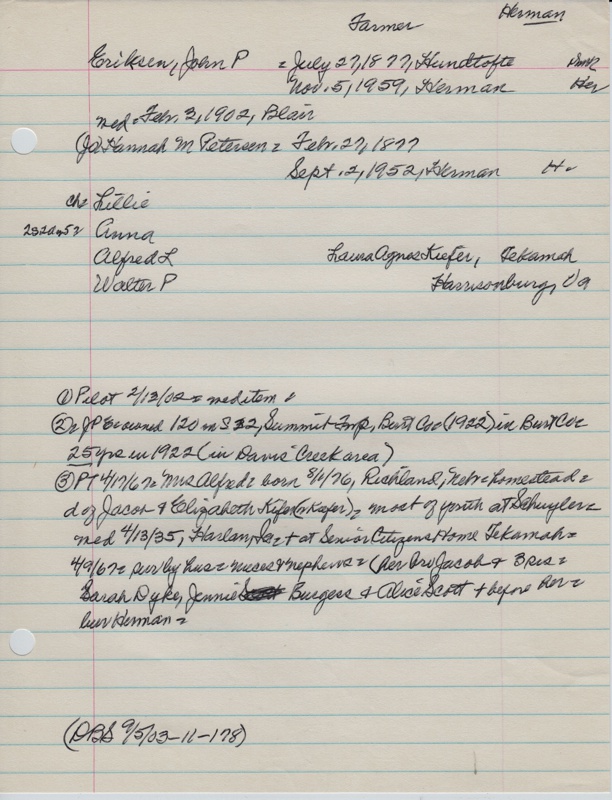 Farmer Herman
Eriksen, John P = July 27, 1877, Hundtofte Dmk
Nov. 5, 1959, Herman Her
med = Febr. 3, 1902, Blair
(Jo) Hannah M Petersen = Febr. 27, 1877
Sept. 2, 1952, Herman H=
ch = Lillie
Anna
Alfred L Laura Agnes Kiefer, Tekamah
Walter P Harrisonburg, Va
① Pilot 2/13/02 = med item =
② = JP E owned 120 in S 32, Summit Twp, Burt Co = (1922) in Burt Co =
25 yrs in 1922 (in Davis Creek area)
③ PT 4/17/67 = "Mrs Alfred = born 8/6/76, Richland, Nebr = homestead =
d of Jacob & Elizabeth Kifer (or Kiefer) = most of youth at Schuyler =
med 4/13/35, Harlan, Ia = + at Senior Citizens Home Tekamah =
4/9/67 = surv by hus = nieces & nephews = (Her bro Jacob & 3 sis =
Sarah Dyke, Jennie Burgess & Alice Scott + before her =
bur Herman =
(DBS 9/5/03-11-178)